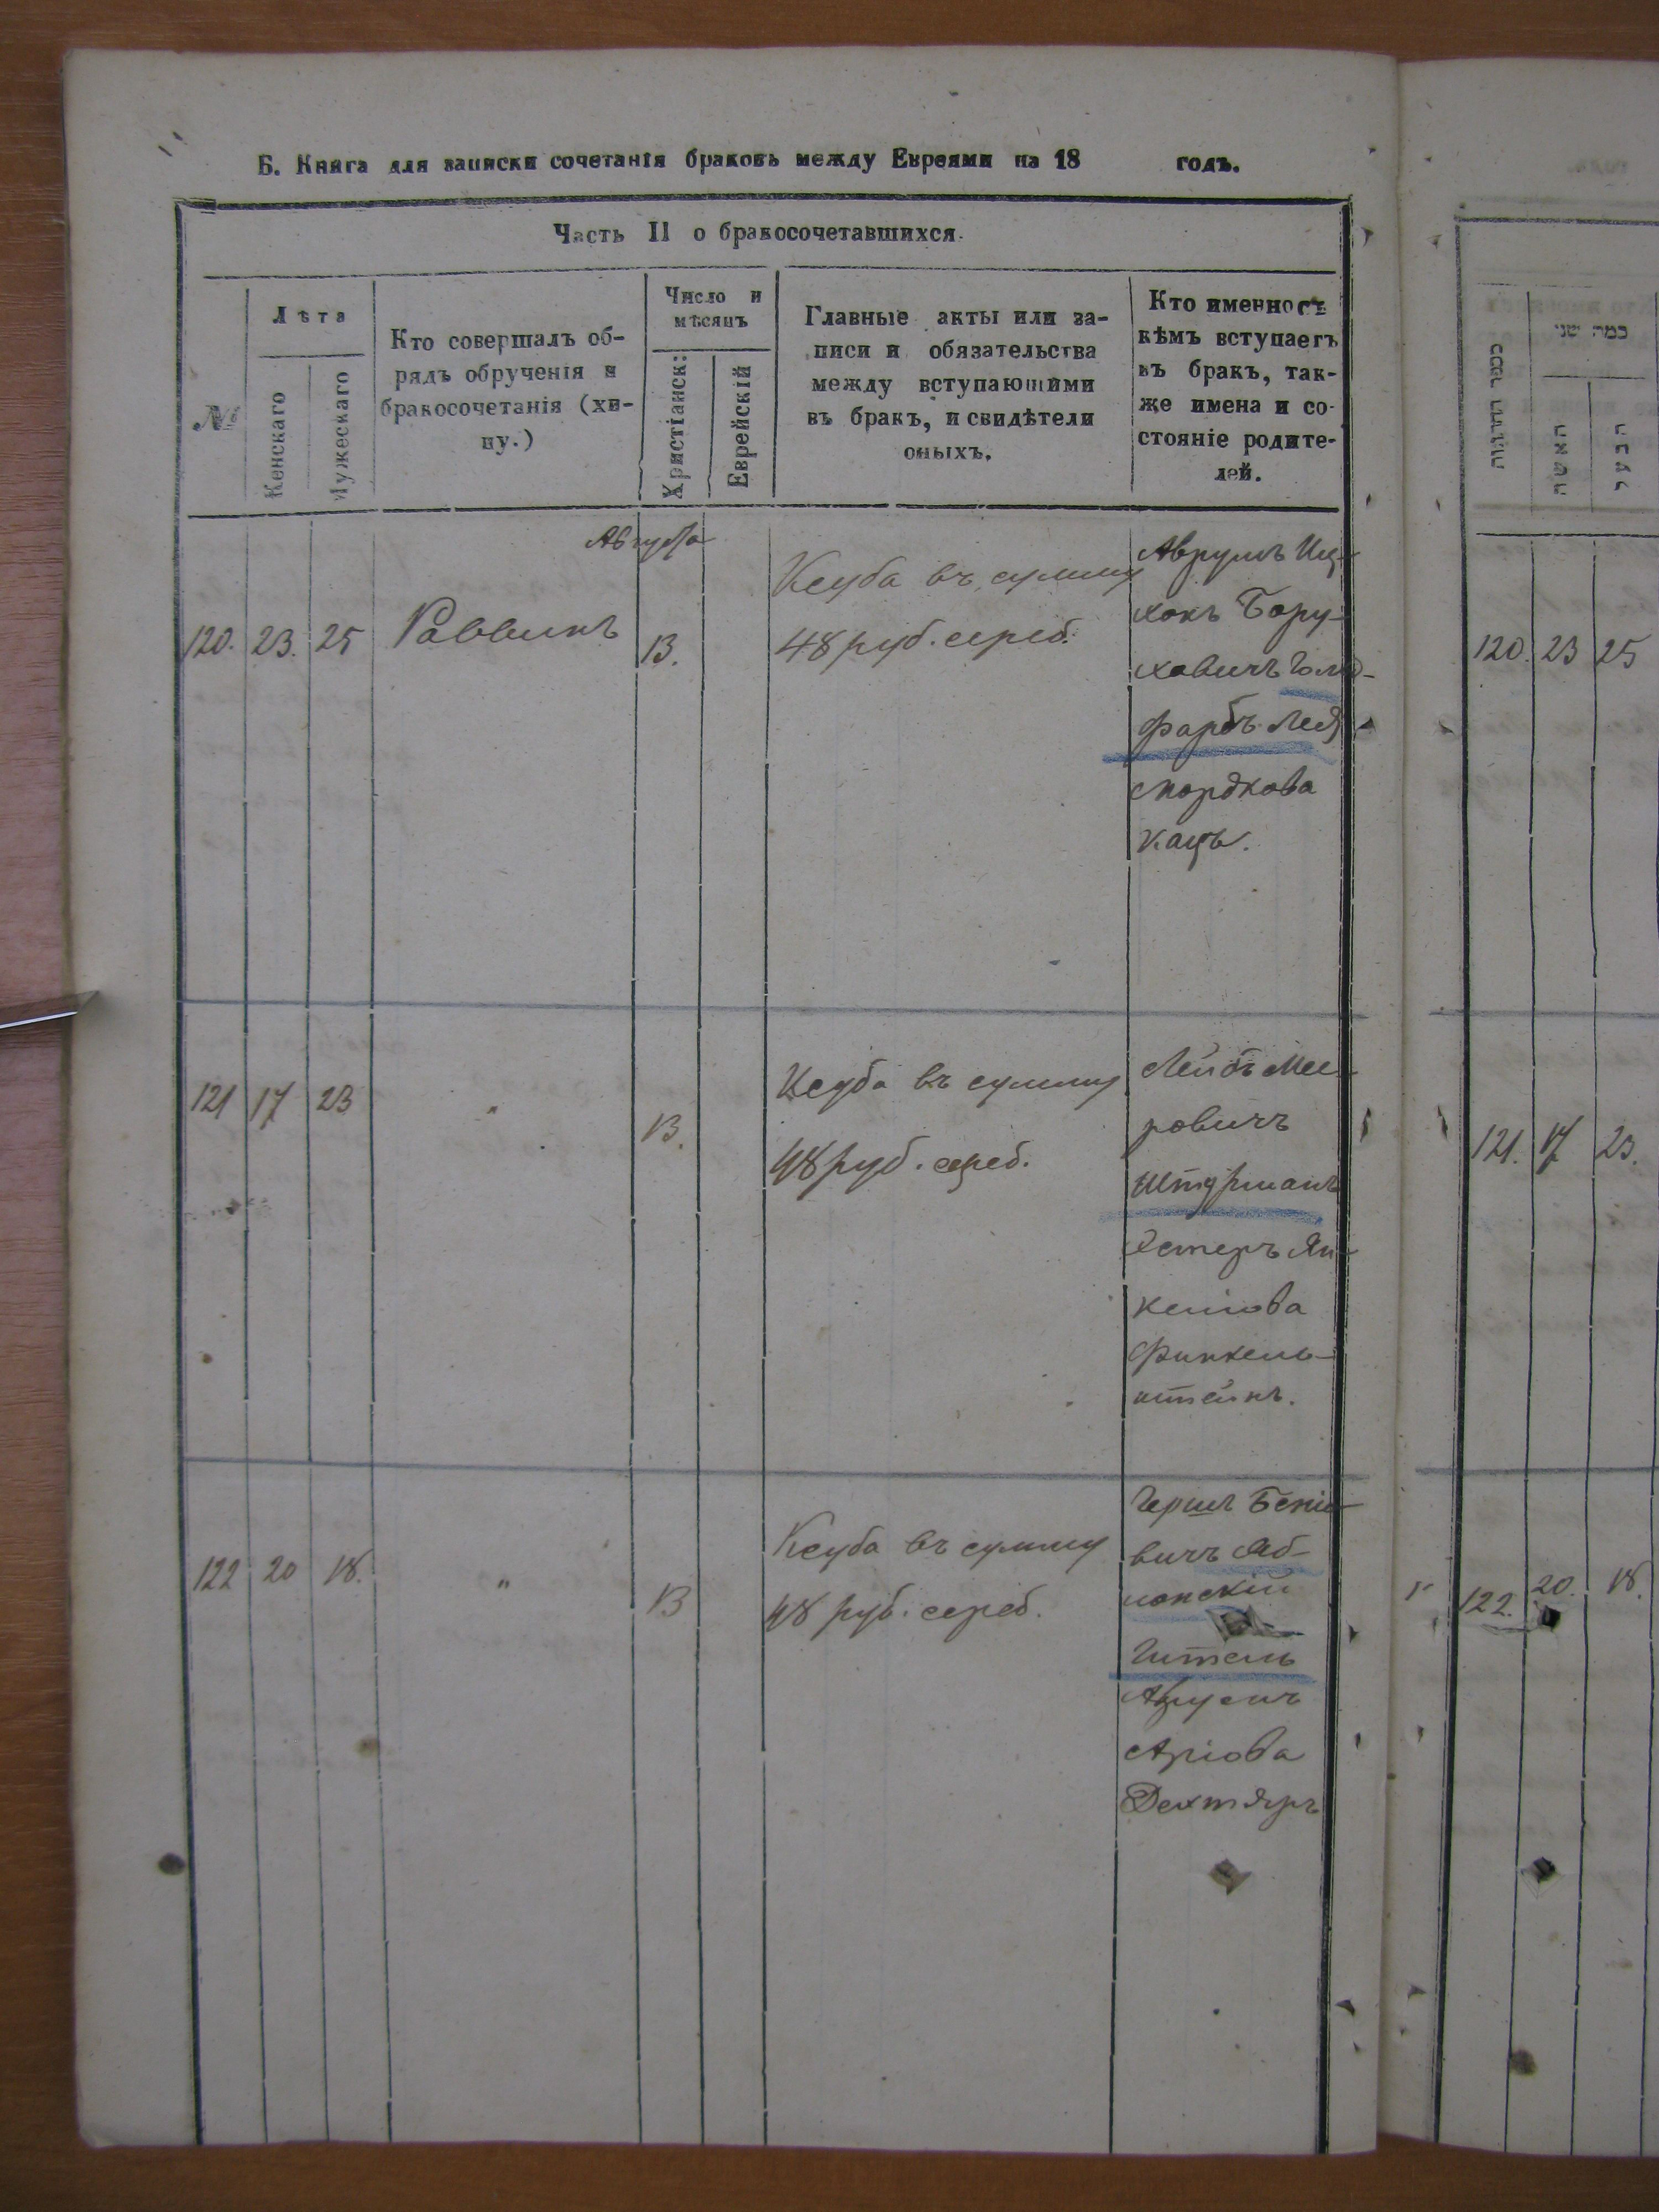 Б. Книга для записки сочетанія браковъ между Евреями на 18 годъ.
Часть II о бракосочетавшихся.
№
Лѣта
Женскаго
Мужескаго
Кто совершалъ об-
рядъ обрученія и
бракосочетанія (хи-
пу.)
Число и
мѣсяцъ
Христіанск:
Еврейскій
Главные акты или за-
писи и обязательства
между вступающими
въ бракъ, и свидѣтели
оныхъ.
Кто именно съ
кѣмъ вступаетъ
въ бракъ, так-
же имена и со-
стояніе родите-
лей.
Августа
120. 23. 25 Раввинъ 13.
Ксуба въ сумму
48 руб. сереб.
Аврумъ Иц-
хокъ Бору-
ховичъ Гольд-
фарбъ Лея
Мордкова
Кацъ.
121 17 23 " 13.
Ксуба въ сумму
48 руб. сереб.
Лейбъ Мее-
ровичъ
Штурманъ
Эстеръ Ян-
келіова
Финкель-
штейнъ.
122 20 18. " 13
Ксуба въ сумму
48 руб. сереб.
Гершъ Беніо-
вичъ Яб-
лонскій
Гитель
Аріова
Дехтяръ
כמה שני
האשה
הבעל
120. 23 25
121. 17 23.
122. 20. 18.